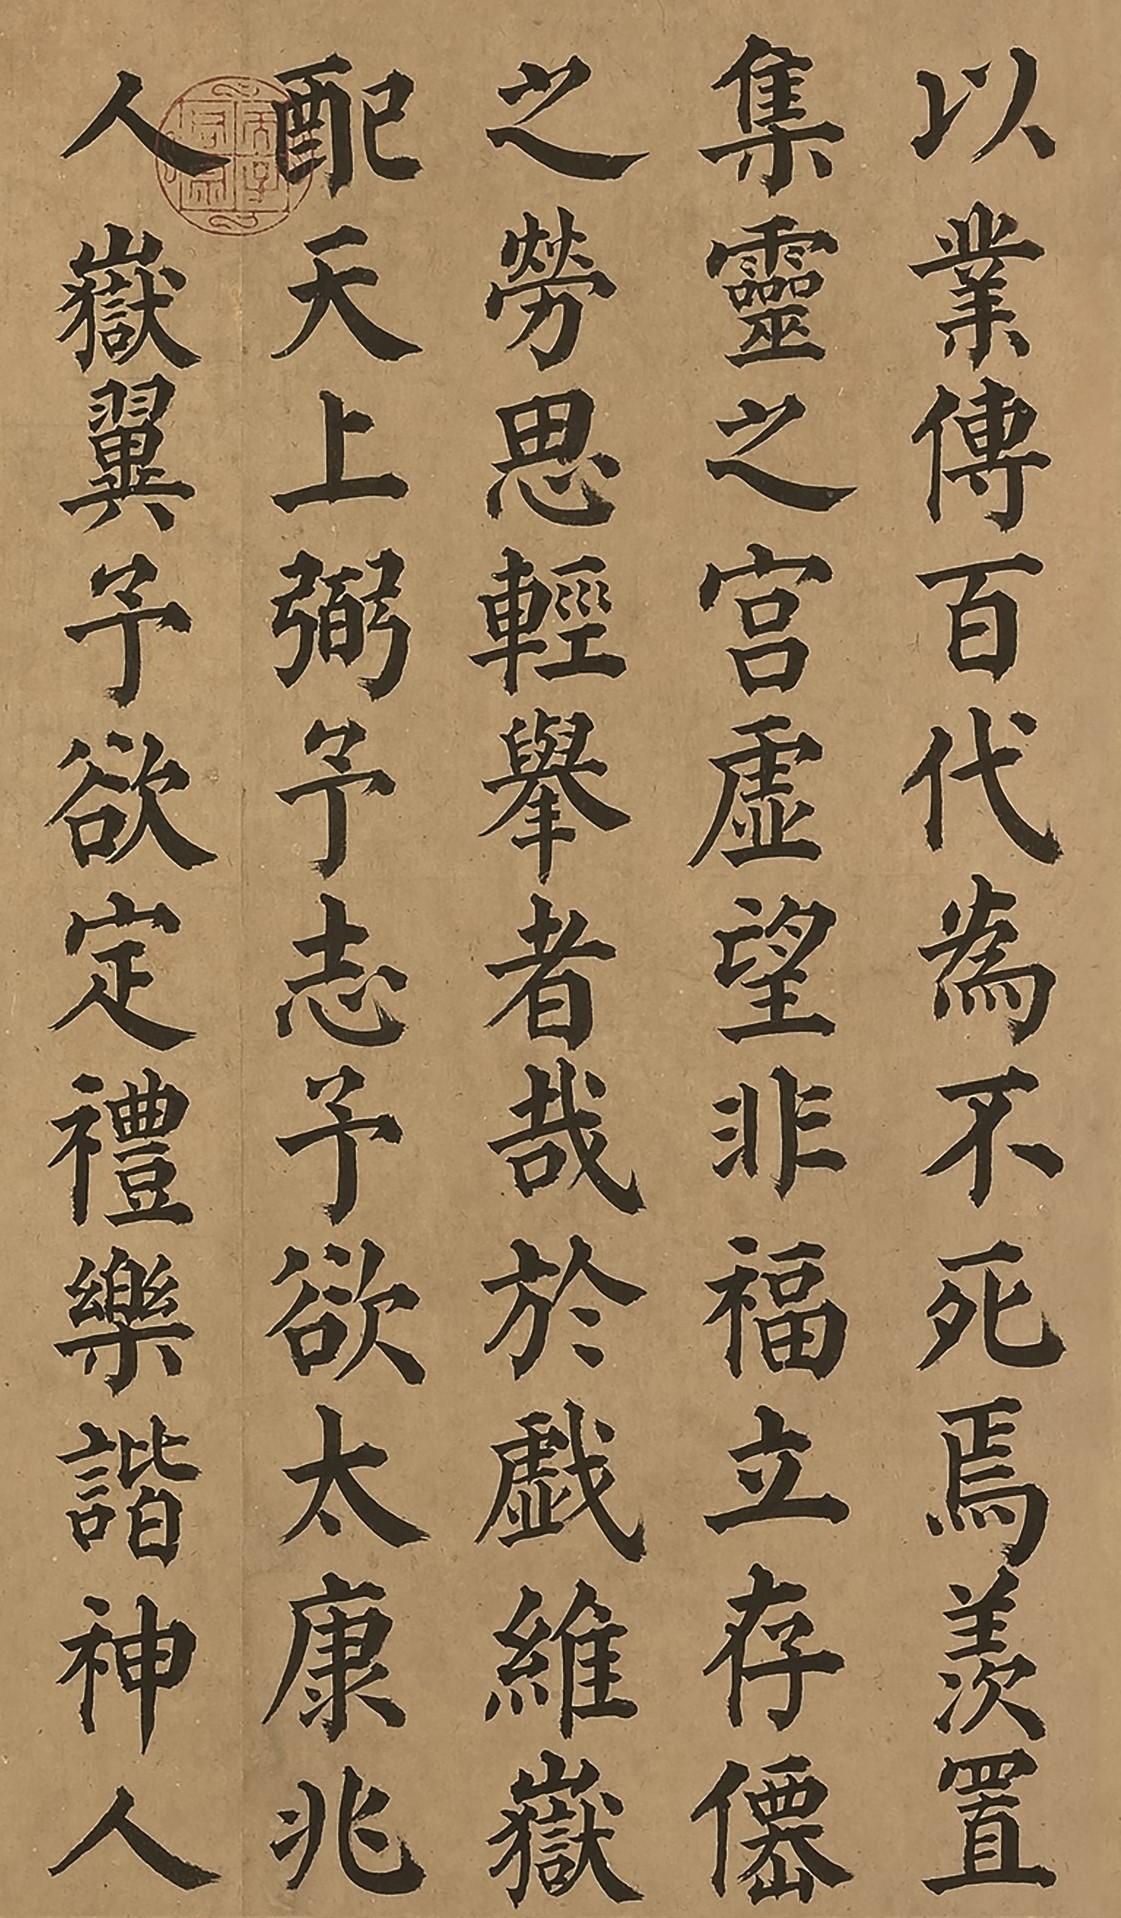 以業傳百代為不死焉羨置
集靈之宮虛望非福立存僊
之勞思輕舉者哉於戲維嶽
配天上弼予志予欲太康兆
人嶽翼予欲定禮樂諧神人